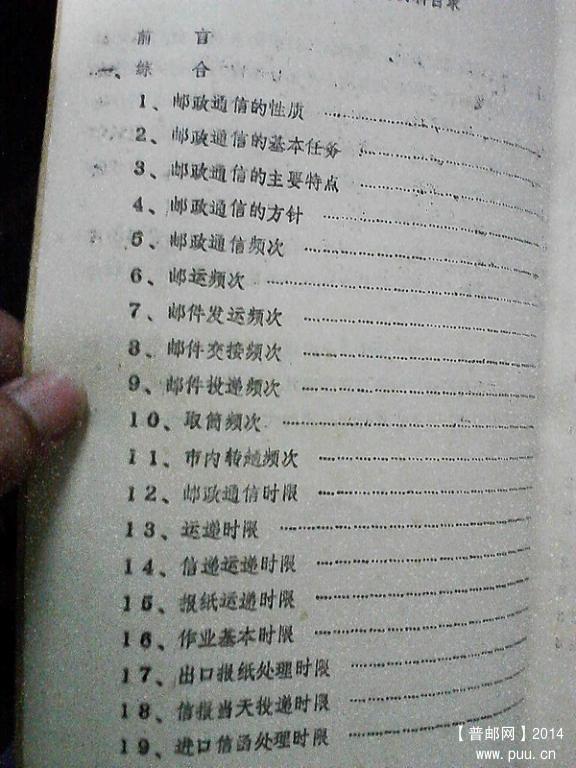 科目录
前 言
一、综 合
1、邮政通信的性质
2、邮政通信的基本任务
3、邮政通信的主要特点
4、邮政通信的方针
5、邮政通信频次
6、邮运频次
7、邮件发运频次
8、邮件交接频次
9、邮件投递频次
10、取筒频次
11、市内转趟频次
12、邮政通信时限
13、运递时限
14、信递运递时限
15、报纸运递时限
16、作业基本时限
17、出口报纸处理时限
18、信报当天投递时限
19、进口信函处理时限
【普邮网】2014
www.puu.cn